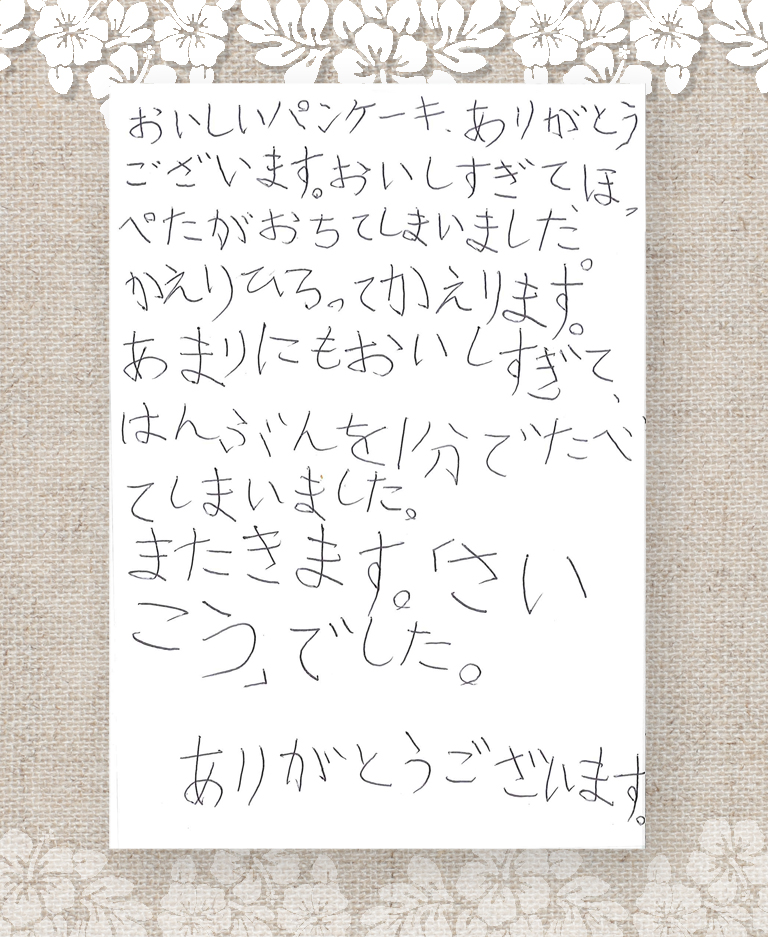 おいしいパンケーキ、ありがとう
ございます。おいしすぎてほっ
ぺたがおちてしまいました
かえりひろってかえります。
あまりにもおいしすぎて、
はんぶんを1分でたべ
てしまいました。
またきます。「さい
こう」でした。
ありがとうございます。